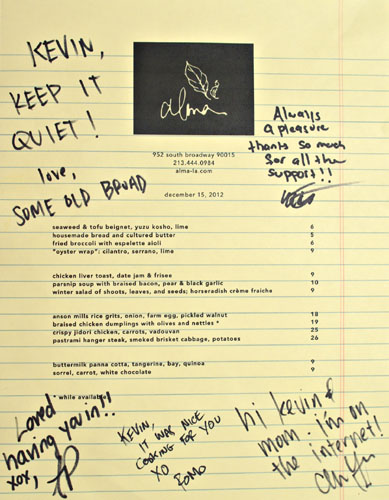 KEVIN,
KEEP IT
QUIET!
love,
SOME OLD BROAD
alma
Always
a pleasure
thanks so much
for all the
support!!
952 south broadway 90015
213.444.0984
alma-la.com
december 15, 2012
seaweed & tofu beignet, yuzu kosho, lime 6
housemade bread and cultured butter 5
fried broccoli with espelette aioli 6
"oyster wrap": cilantro, serrano, lime 9
chicken liver toast, date jam & frisee 9
parsnip soup with braised bacon, pear & black garlic 10
winter salad of shoots, leaves, and seeds; horseradish crème fraiche 9
anson mills rice grits, onion, farm egg, pickled walnut 18
braised chicken dumplings with olives and nettles * 19
crispy jidori chicken, carrots, vadouvan 25
pastrami hanger steak, smoked brisket cabbage, potatoes 26
buttermilk panna cotta, tangerine, bay, quinoa 9
sorrel, carrot, white chocolate 9
* while available
Loved
having you in!!
xox,
KEVIN,
IT WAS NICE
COOKING FOR YOU
XO
hi kevin &
mom. i'm on
the internet!